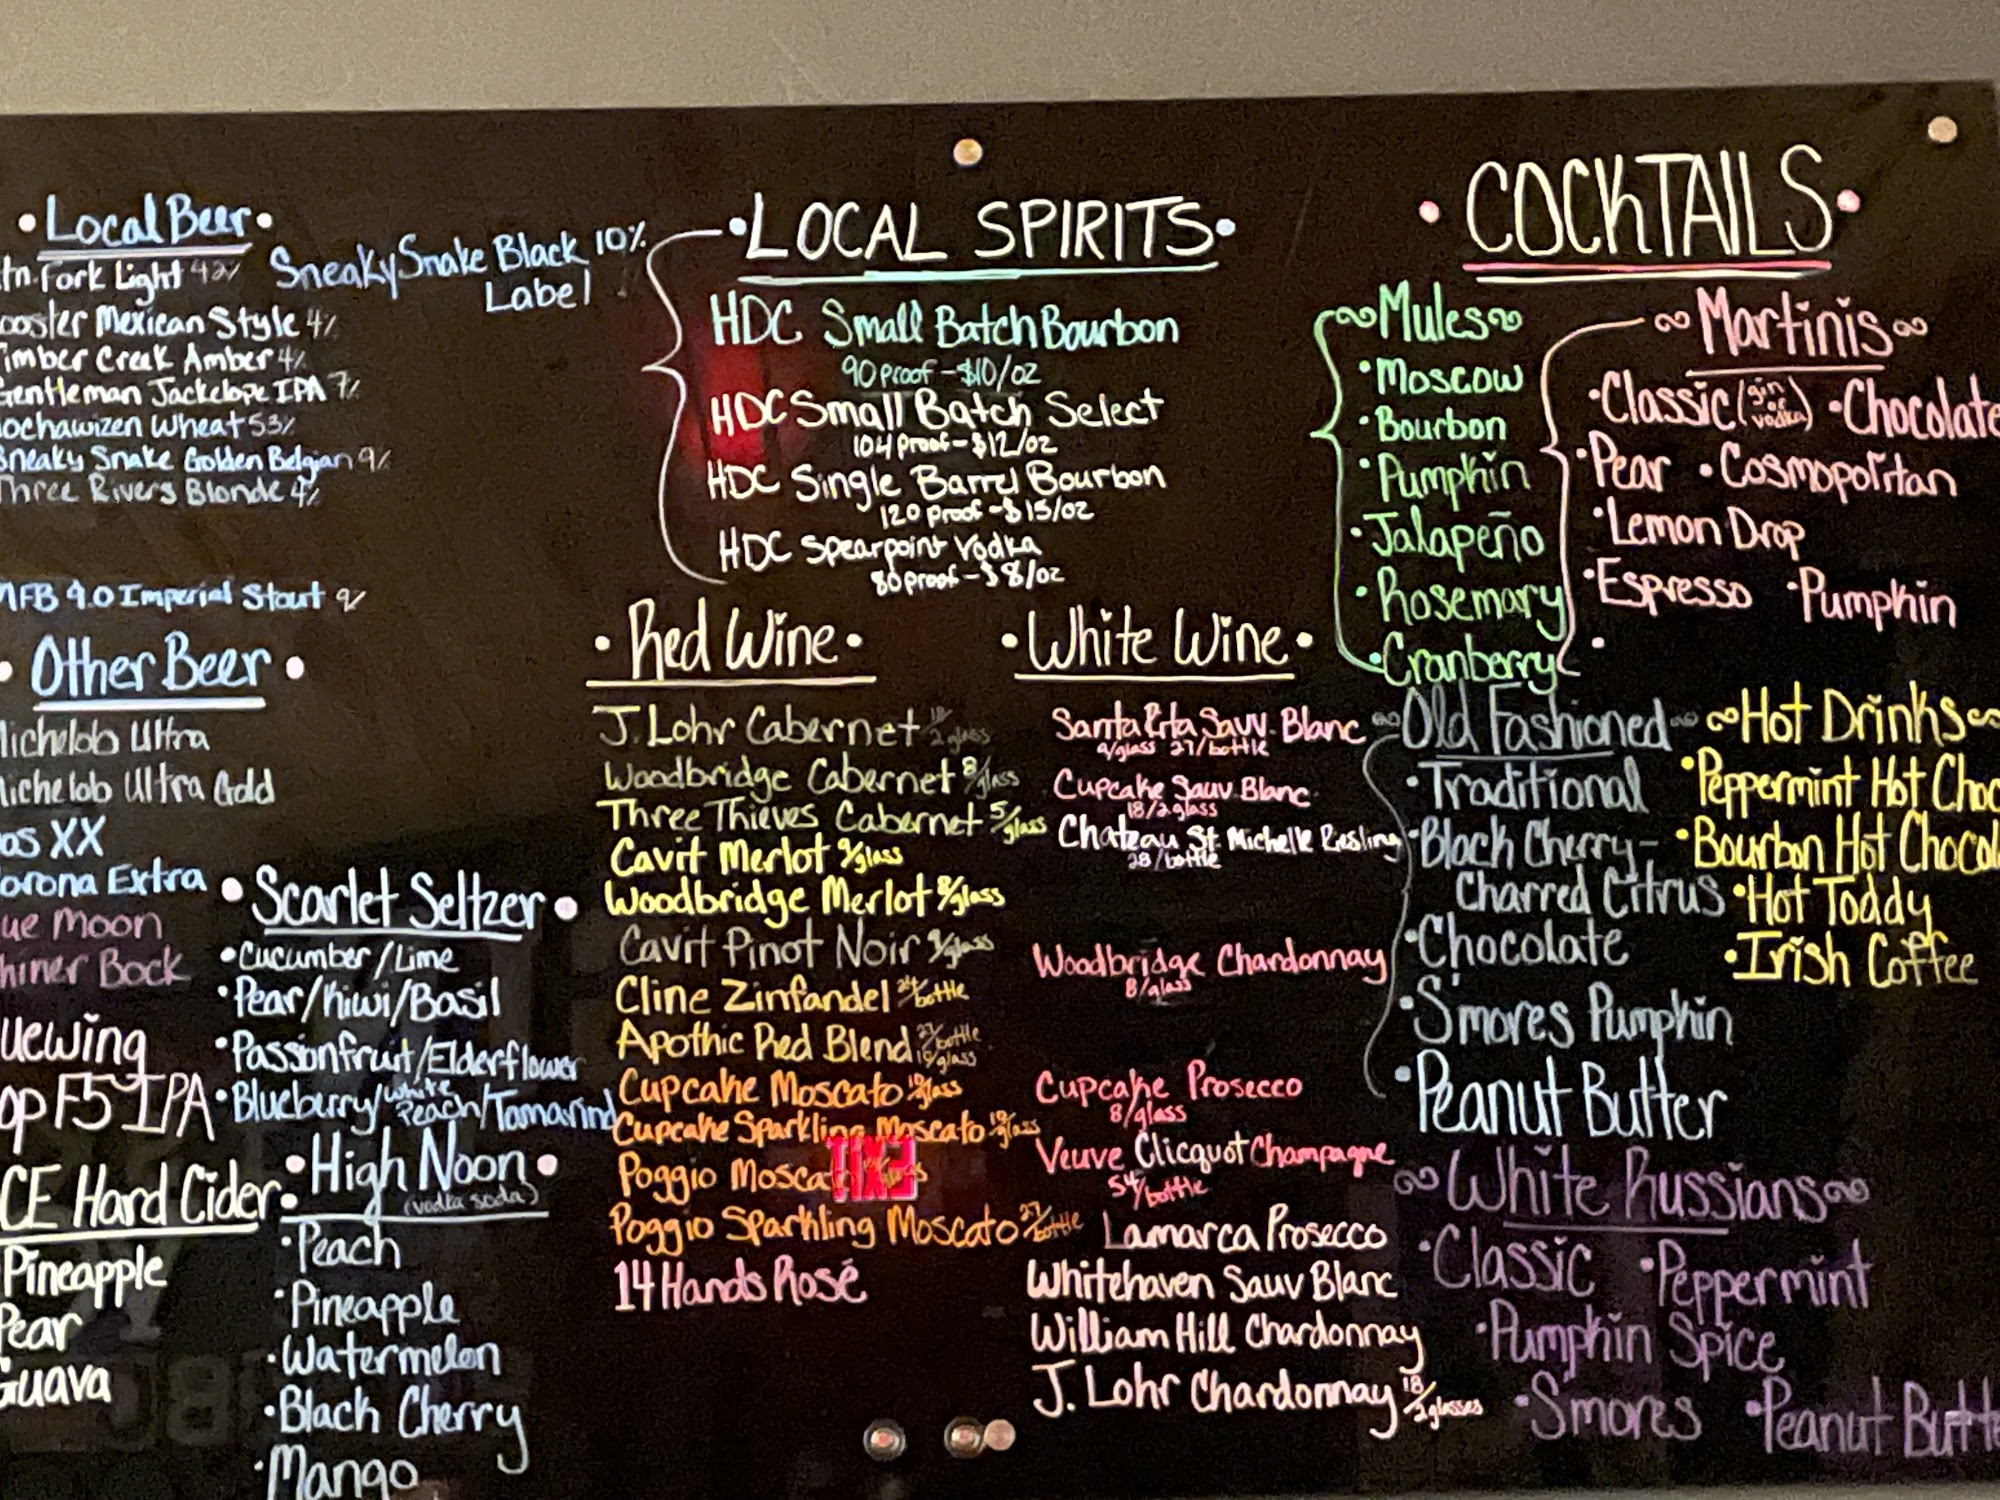 • Local Beer •
Fork Light 4.2%
Sneaky Snake Black 10%
Label
Mexican Style 4%
Creek Amber 4%
Gentleman Jackelope IPA 7%
Wheat 5.3%
Sneaky Snake Golden Belgian 9%
Three Rivers Blonde 4%
MFB 9.0 Imperial Stout 9%
• Other Beer •
Michelob Ultra
Michelob Ultra Gold
XX
Corona Extra
Moon
Bock
F5 IPA
Hard Cider
Pineapple
Pear
Guava
• Scarlet Seltzer •
• Cucumber/Lime
• Pear/Kiwi/Basil
• Passionfruit/Elderflower
• Blueberry/White Peach/Tamarind
• High Noon •
(vodka soda)
• Peach
• Pineapple
• Watermelon
• Black Cherry
• Mango
• LOCAL SPIRITS •
HDC Small Batch Bourbon
90 proof - $10/oz
HDC Small Batch Select
104 proof - $12/oz
HDC Single Barrel Bourbon
120 proof - $15/oz
HDC Spearpoint Vodka
80 proof - $8/oz
• Red Wine •
J. Lohr Cabernet 18/2 glass
Woodbridge Cabernet 8/glass
Three Thieves Cabernet 5/glass
Cavit Merlot 9/glass
Woodbridge Merlot 8/glass
Cavit Pinot Noir 9/glass
Cline Zinfandel 24/bottle
Apothic Red Blend 27/bottle
Cupcake Moscato 10/glass
Cupcake Sparkling Moscato 10/glass
Poggio Moscato
Poggio Sparkling Moscato 27/bottle
14 Hands Rosé
• White Wine •
Santa Rita Sauv. Blanc
9/glass 27/bottle
Cupcake Sauv. Blanc
18/2 glass
Chateau St. Michelle Riesling
28/bottle
Woodbridge Chardonnay
8/glass
Cupcake Prosecco
8/glass
Veuve Clicquot Champagne
54/bottle
Lamarca Prosecco
Whitehaven Sauv Blanc
William Hill Chardonnay
J. Lohr Chardonnay 18/2 glasses
• COCKTAILS •
Mules
• Moscow
• Bourbon
• Pumpkin
• Jalapeño
• Rosemary
• Cranberry
Martinis
• Classic (gin or vodka) • Chocolate
• Pear • Cosmopolitan
• Lemon Drop
• Espresso • Pumpkin
•
Old Fashioned
• Traditional
• Black Cherry-
Charred Citrus
• Chocolate
• S'mores Pumpkin
• Peanut Butter
Hot Drinks
• Peppermint Hot Choc
• Bourbon Hot Chocol
• Hot Toddy
• Irish Coffee
White Russians
• Classic • Peppermint
• Pumpkin Spice
• S'mores • Peanut Butte